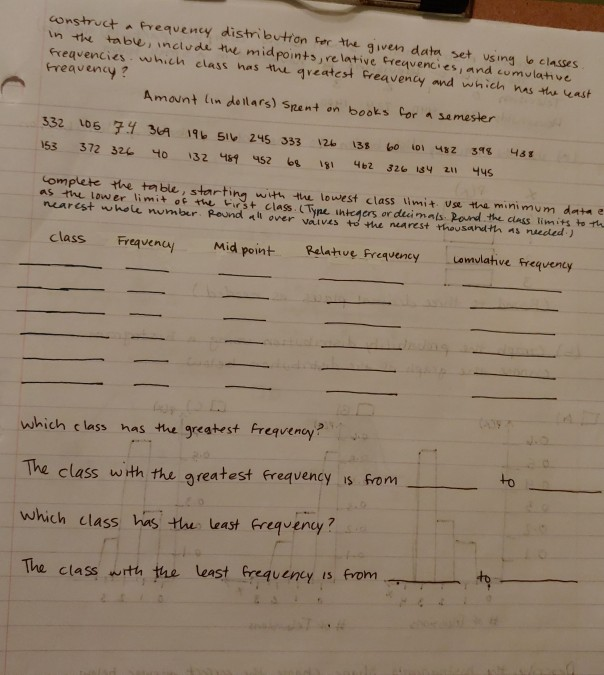 construct a frequency distribution for the given data set using 6 classes.
In the table, include the midpoints, relative frequencies, and cumulative
frequencies. which class has the greatest frequency and which has the least
frequency?
Amount (in dollars) spent on books for a semester
332 105 74 369 196 516 245 333 126 138 60 101 482 398 438
153 372 326 40 132 489 452 68 181 462 326 134 211 445
complete the table, starting with the lowest class limit. Use the minimum data e
as the lower limit of the first class. (Type integers or decimals. Round the class limits to th
nearest whole number. Round all over values to the nearest thousandth as needed.)
Class Frequency Mid point Relative Frequency Comulative Frequency
Which class has the greatest frequency?
The class with the greatest frequency is from to
Which class has the least frequency?
The class with the least frequency is from to